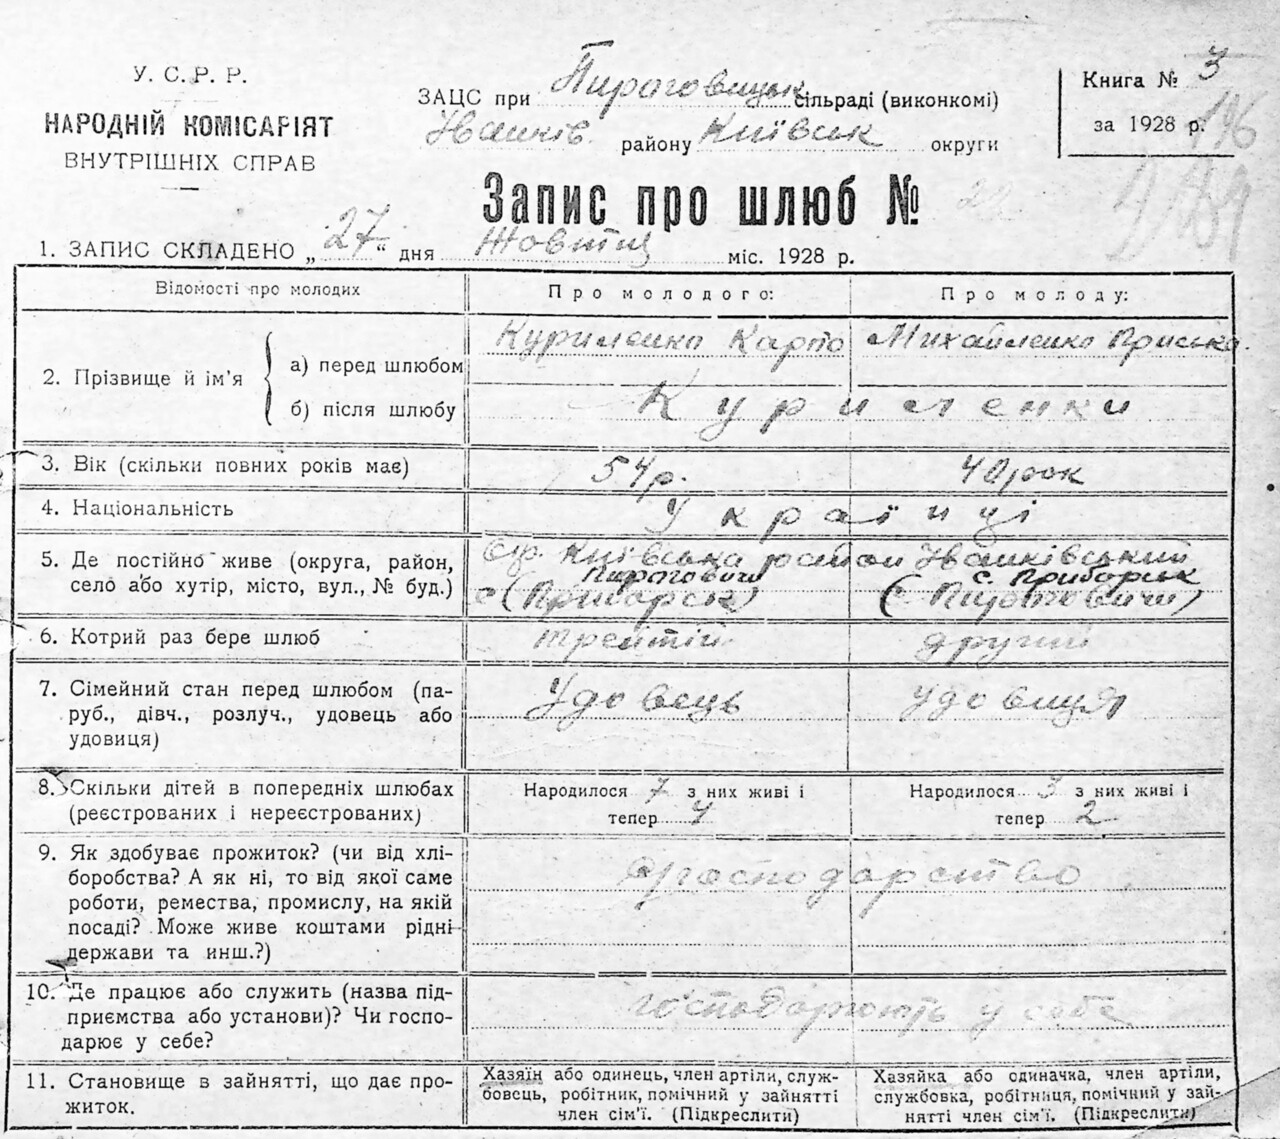 У. С. Р. Р.
НАРОДНІЙ КОМІСАРІЯТ
ВНУТРІШНІХ СПРАВ
ЗАЦС при Пироговицьк сільраді (виконкомі)
Іванків. району Київськ округи
Книга № 3
за 1928 р. 146
Запис про шлюб № 22
1. ЗАПИС СКЛАДЕНО „ 27 “ дня Жовтня міс. 1928 р.
Відомості про молодих Про молодого: Про молоду:
2. Прізвище й ім’я
а) перед шлюбом Куриленко Карпо Михайленко Приська.
б) після шлюбу Куриленки
3. Вік (скільки повних років має) 54 р. 40 рок
4. Національність Українці
5. Де постійно живе (округа, район, село або хутір, місто, вул., № буд.)
Окр. Київська район Іванківський
Пироговичи с.Приборськ
с (Приборськ) (с Пироговичи)
6. Котрий раз бере шлюб третій другий
7. Сімейний стан перед шлюбом (па-
руб., дівч., розлуч., удовець або
удовиця)
Удовець удовиця
8. Скільки дітей в попередніх шлюбах
(реєстрованих і нереєстрованих)
Народилося 7 з них живі і
тепер 4
Народилося 3 з них живі і
тепер 2
9. Як здобуває прожиток? (чи від хлі-
боробства? А як ні, то від якої саме
роботи, ремества, промислу, на якій
посаді? Може живе коштами рідні
держави та инш.?)
господарство
10. Де працює або служить (назва під-
приємства або установи)? Чи госпо-
дарює у себе?
господарюють у себе
11. Становище в зайнятті, що дає про-
житок.
Хазяїн або одинець, член артіли, служ-
бовець, робітник, помічний у зайнятті
член сім’ї. (Підкреслити)
Хазяйка або одиначка, член артіли,
службовка, робітниця, помічний у зай-
нятті член сім’ї. (Підкреслити)